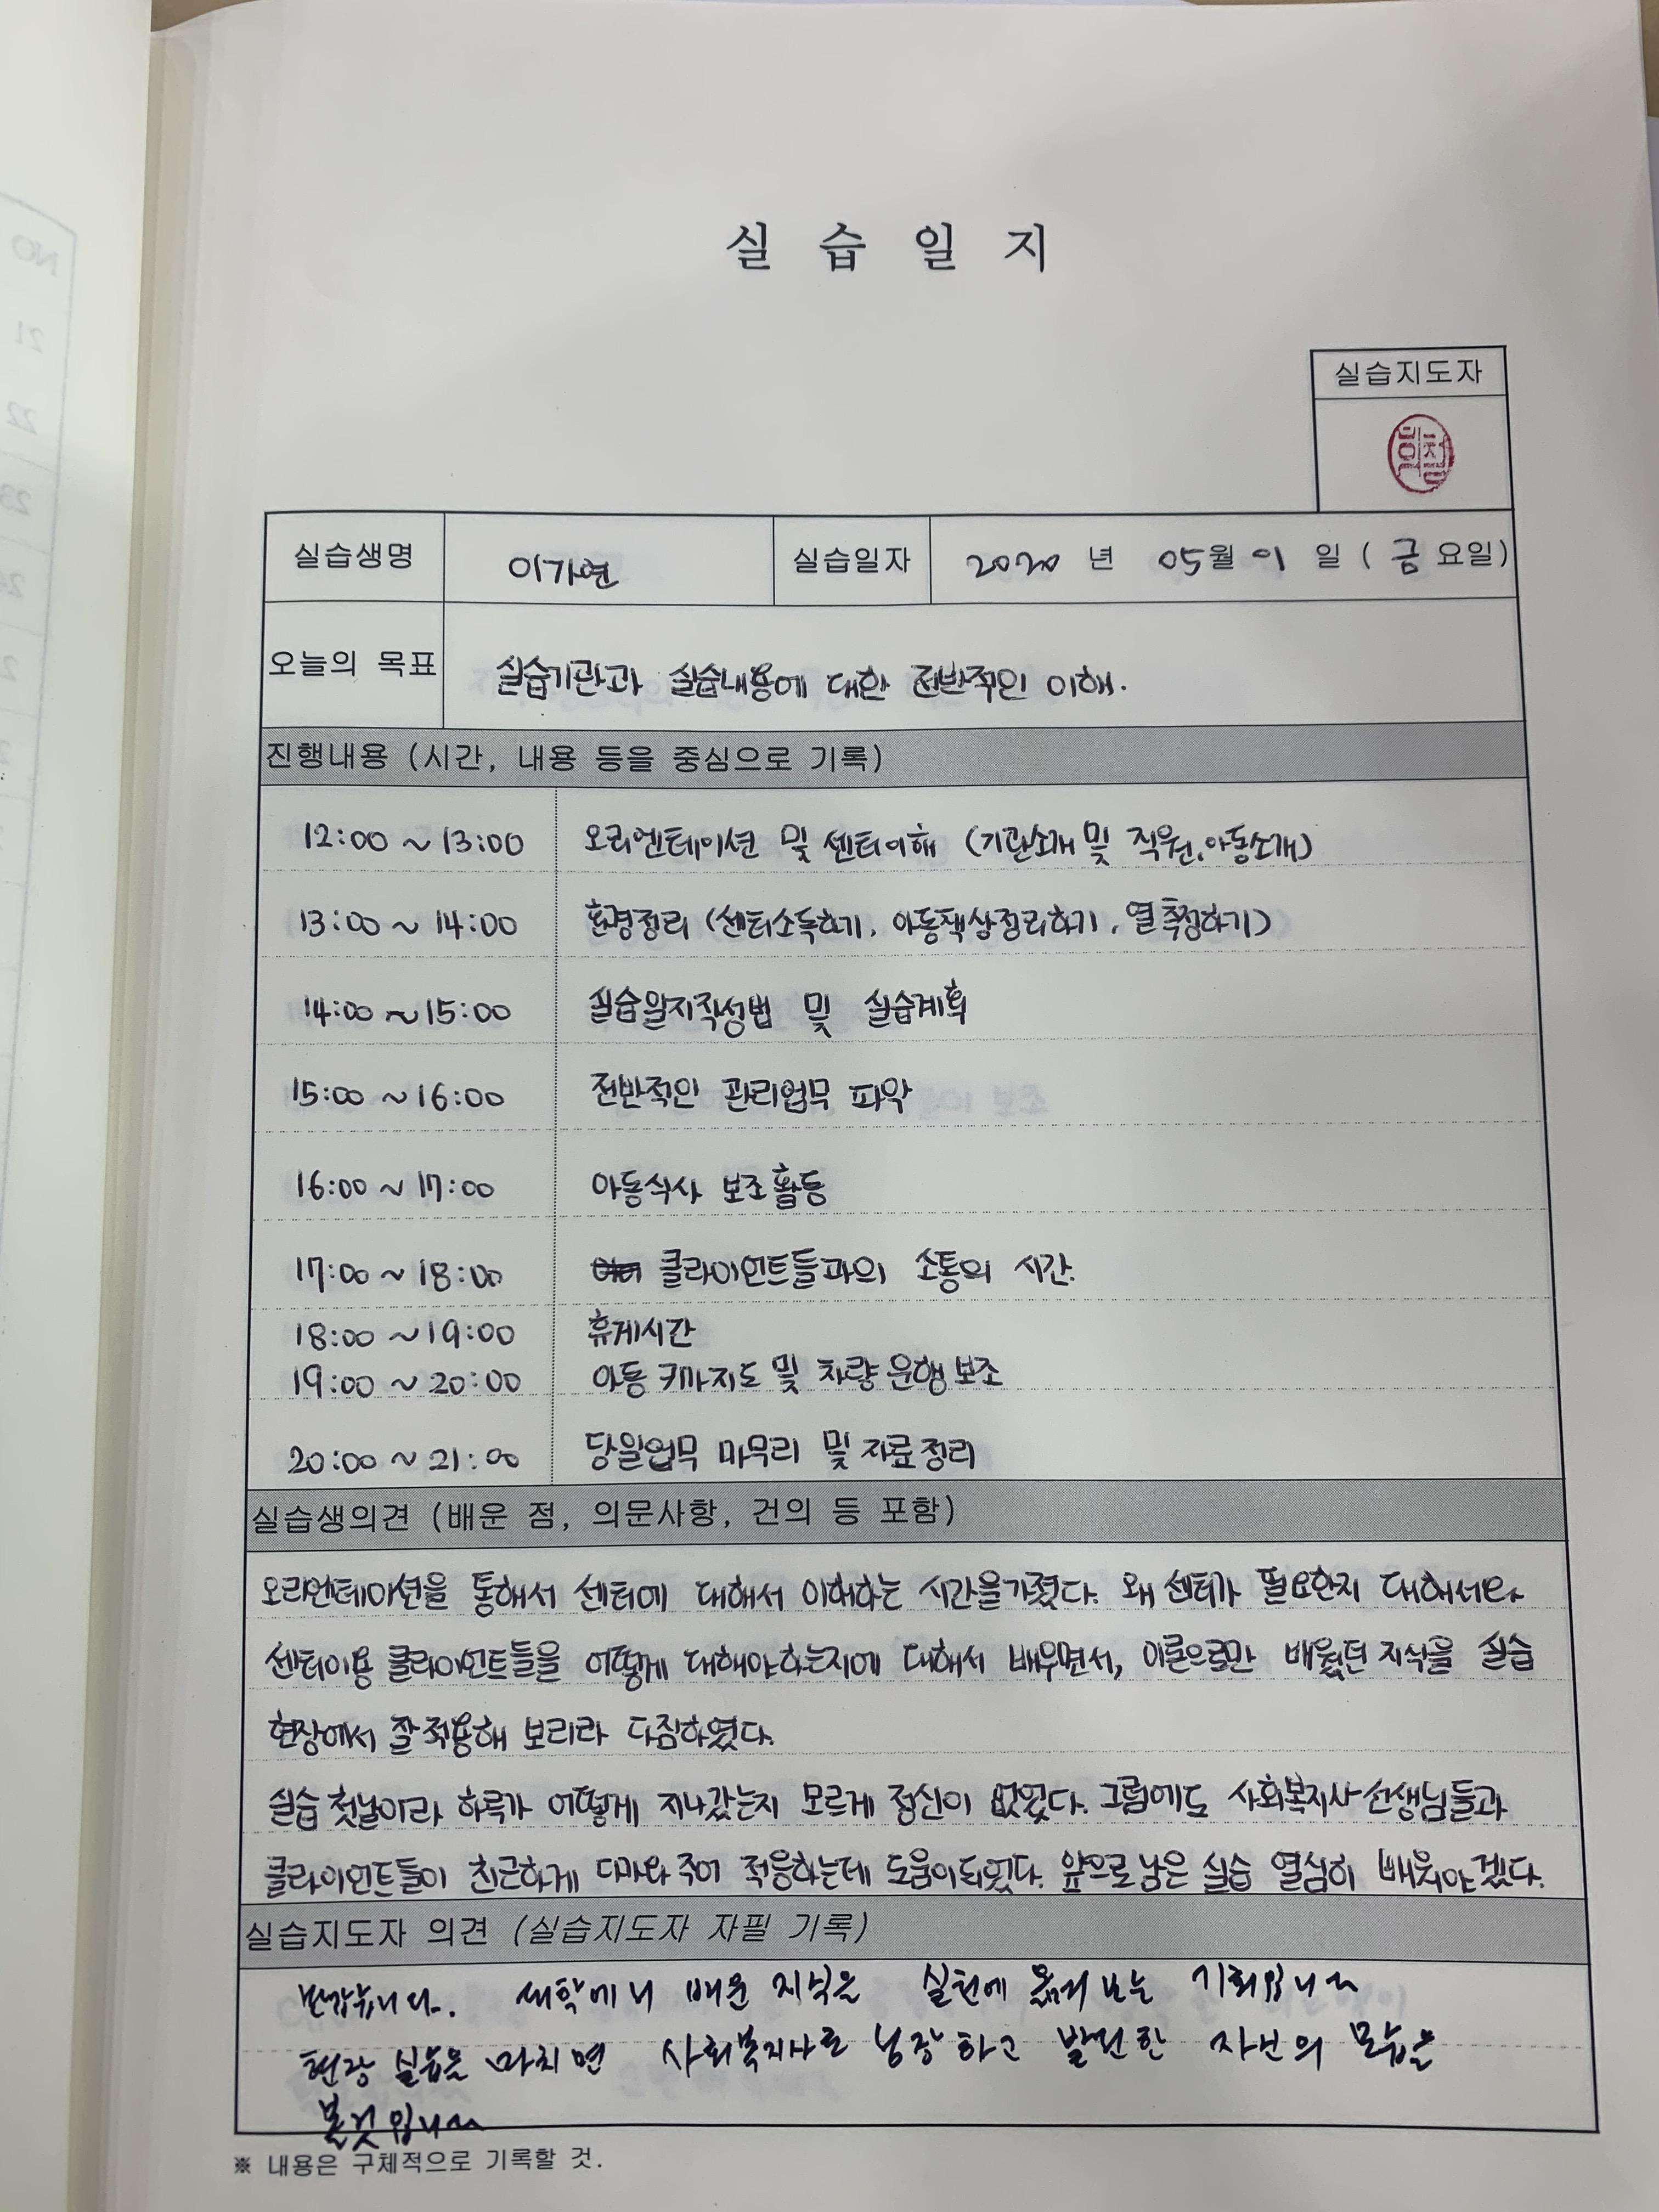 실 습 일 지
실습지도자
실습생명 이가연 실습일자 2020 년 05월 01 일 ( 금 요일)
오늘의 목표 실습기관과 실습내용에 대한 전반적인 이해.
진행내용 (시간, 내용 등을 중심으로 기록)
12:00 ~ 13:00 오리엔테이션 및 센터이해 (기관소개 및 직원,아동소개)
13:00 ~ 14:00 환경정리 (센터소독하기, 아동책상정리하기, 열측정하기)
14:00 ~ 15:00 실습일지작성법 및 실습계획
15:00 ~ 16:00 전반적인 관리업무 파악
16:00 ~ 17:00 아동식사 보조활동
17:00 ~ 18:00 클라이언트들과의 소통의 시간.
18:00 ~ 19:00 휴게시간
19:00 ~ 20:00 아동 귀가지도 및 차량운행보조
20:00 ~ 21:00 당일업무 마무리 및 자료정리
실습생의견 (배운 점, 의문사항, 건의 등 포함)
오리엔테이션을 통해서 센터에 대해서 이해하는 시간을가졌다. 왜 센터가 필요한지 대해서와
센터이용 클라이언트들을 어떻게 대해야하는지에 대해서 배우면서, 이론으로만 배웠던 지식을 실습
현장에서 잘 적용해 보리라 다짐하였다.
실습 첫날이라 하루가 어떻게 지나갔는지 모르게 정신이 없었다. 그럼에도 사회복지사선생님들과
클라이언트들이 친근하게 다가와 주어 적응하는데 도움이되었다. 앞으로남은 실습 열심히 배워야겠다.
실습지도자 의견 (실습지도자 자필 기록)
반갑습니다. 배운 지식을 실천에 옮겨 보는 기회입니다
현장 실습을 마치면 사회복지사로 성장하고 발전한 자신의 모습을
볼것입니다
※ 내용은 구체적으로 기록할 것.